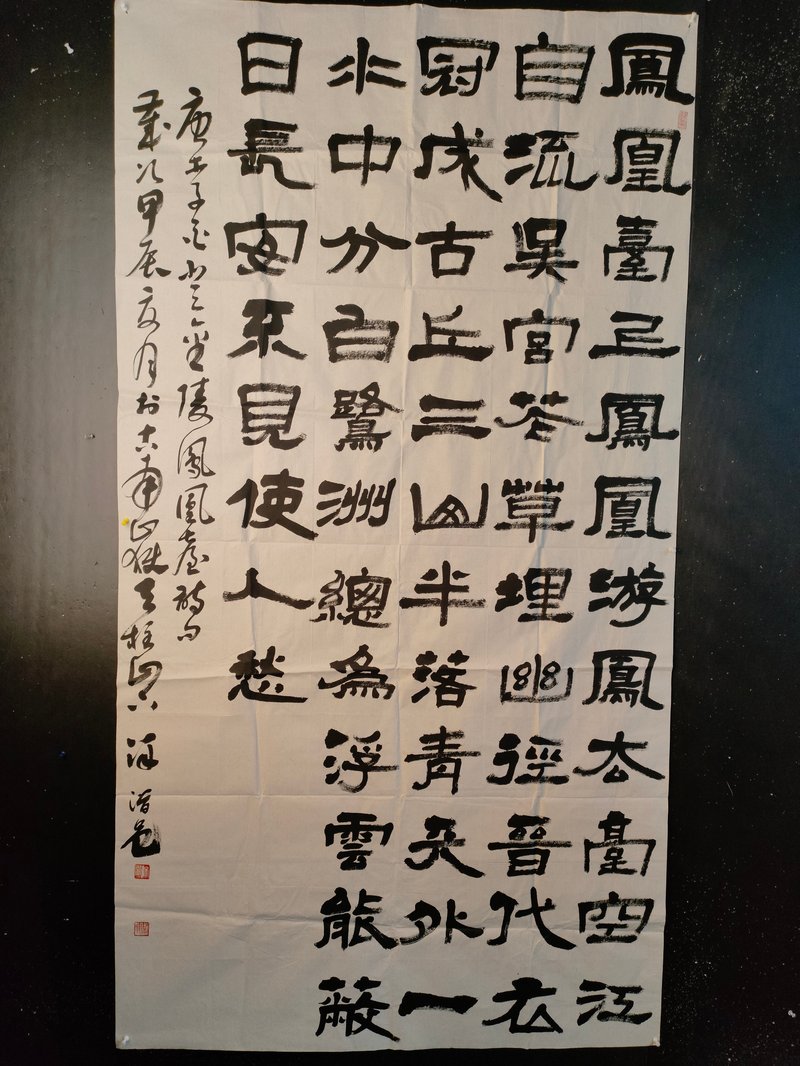 鳳凰臺上鳳凰游鳳去臺空江
自流吳宮花草埋幽徑晉代衣
冠成古丘三山半落青天外一
水中分白鷺洲總為浮雲能蔽
日長安不見使人愁
唐金陵鳳凰臺詩句
歲次甲辰夏月於古南嶽天柱山下